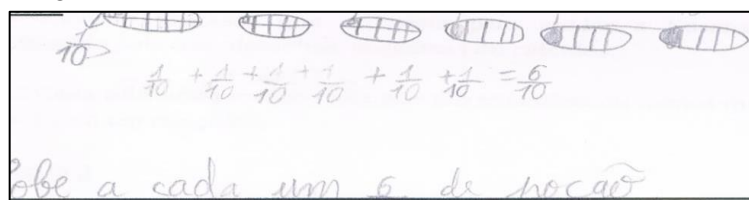 1/10
1/10 + 1/10 + 1/10 + 1/10 + 1/10 + 1/10 = 6/10
obe a cada um 6 de poção